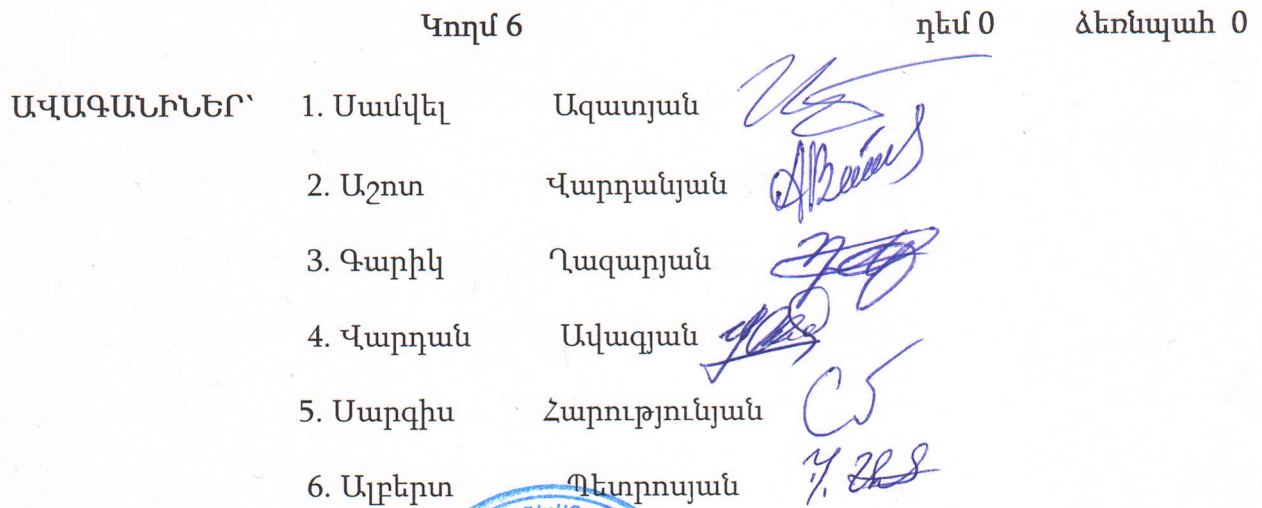 Կողմ 6 դեմ 0 ձեռնպահ 0
ԱՎԱԳԱՆԻՆԵՐ՝ 1. Սամվել Ազատյան
2. Աշոտ Վարդանյան
3. Գարիկ Ղազարյան
4. Վարդան Ավագյան
5. Սարգիս Հարությունյան
6. Ալբերտ Պետրոսյան